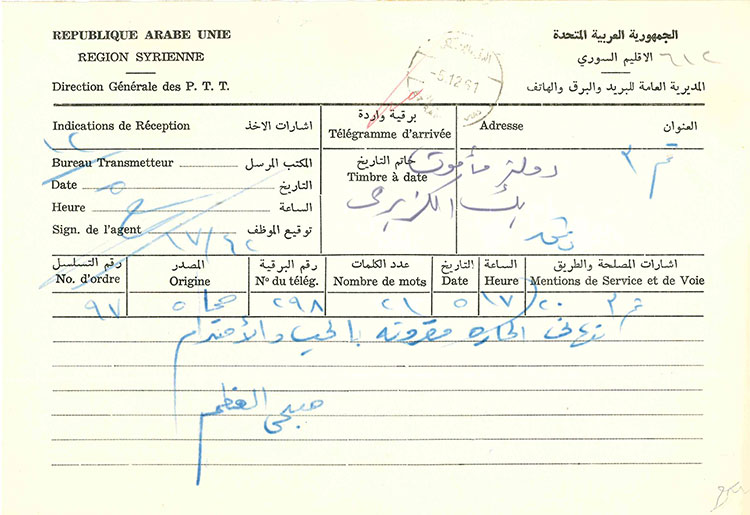 REPUBLIQUE ARABE UNIE
REGION SYRIENNE
Direction Générale des P. T. T.
الجمهورية العربية المتحدة
الاقليم السوري
٦١٢
المديرية العامة للبريد والبرق والهاتف
-5.12.61
Indications de Réception اشارات الاخذ
برقية واردة
Télégramme d'arrivée
Adresse العنوان
Bureau Transmetteur المكتب المرسل
Date التاريخ
Heure الساعة
Sign. de l'agent توقيع الموظف
١٧/٤٢
خاتم التاريخ
Timbre à date
دولة مأمون
بك الكزبري
دمشق
رقم التسلسل المصدر رقم البرقية عدد الكلمات التاريخ الساعة اشارات المصلحة والطريق
No. d'ordre Origine Nº du télég. Nombre de mots Date Heure Mentions de Service et de Voie
٩٧ حماه ٢٩٨ ٢١ ٥ ١٧/٢٠
تهاني الحارة مقرونة بالحب والأحترام
صبحي العظم